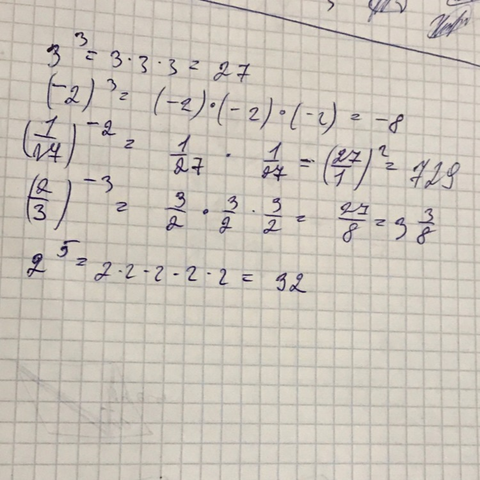 3^3 = 3 · 3 · 3 = 27
(-2)^3 = (-2) · (-2) · (-2) = -8
(1/27)^-2 = 1/27 · 1/27 = (27/1)^2 = 729
(2/3)^-3 = 3/2 · 3/2 · 3/2 = 27/8 = 3 3/8
2^5 = 2 · 2 · 2 · 2 · 2 = 32